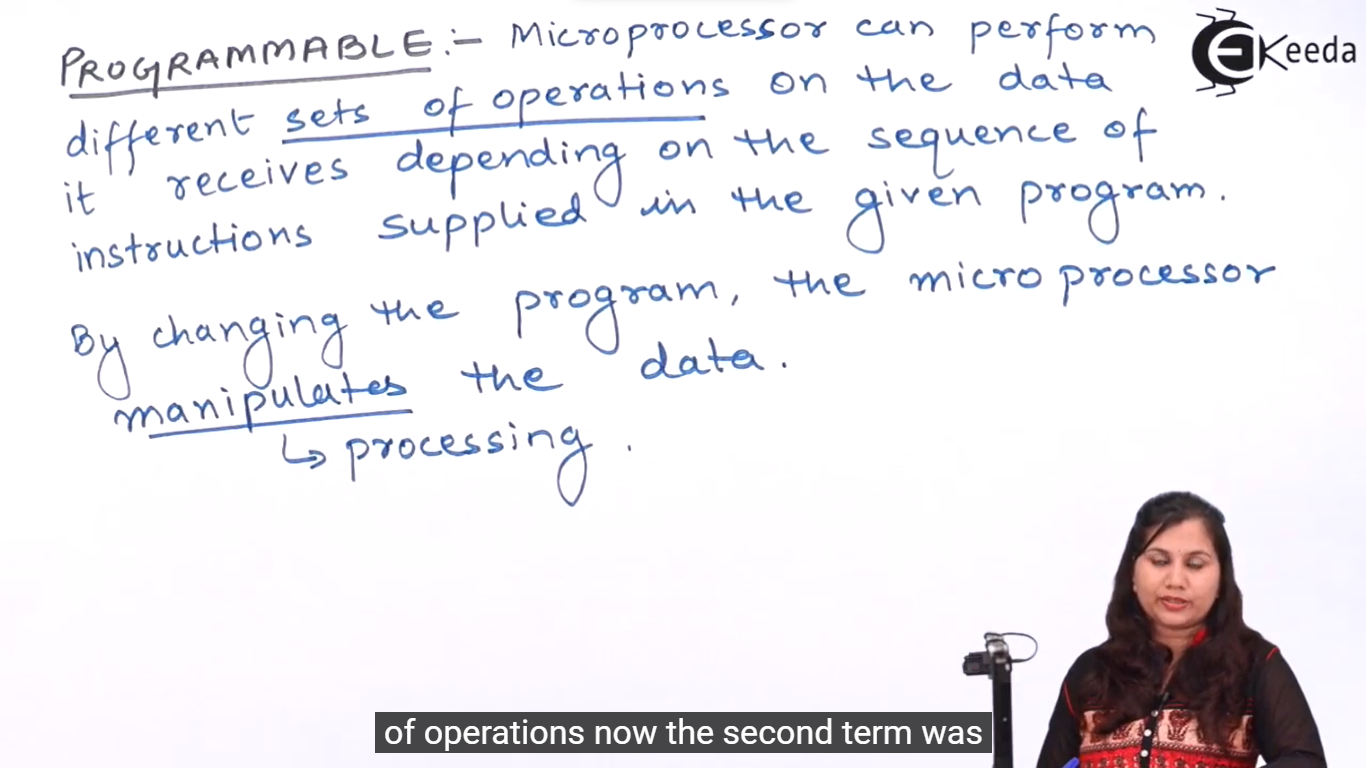 PROGRAMMABLE :- Microprocessor can perform
different sets of operations on the data
it receives depending on the sequence of
instructions supplied in the given program.
By changing the program, the microprocessor
manipulates the data.
↳ processing.
Ekeeda
of operations now the second term was